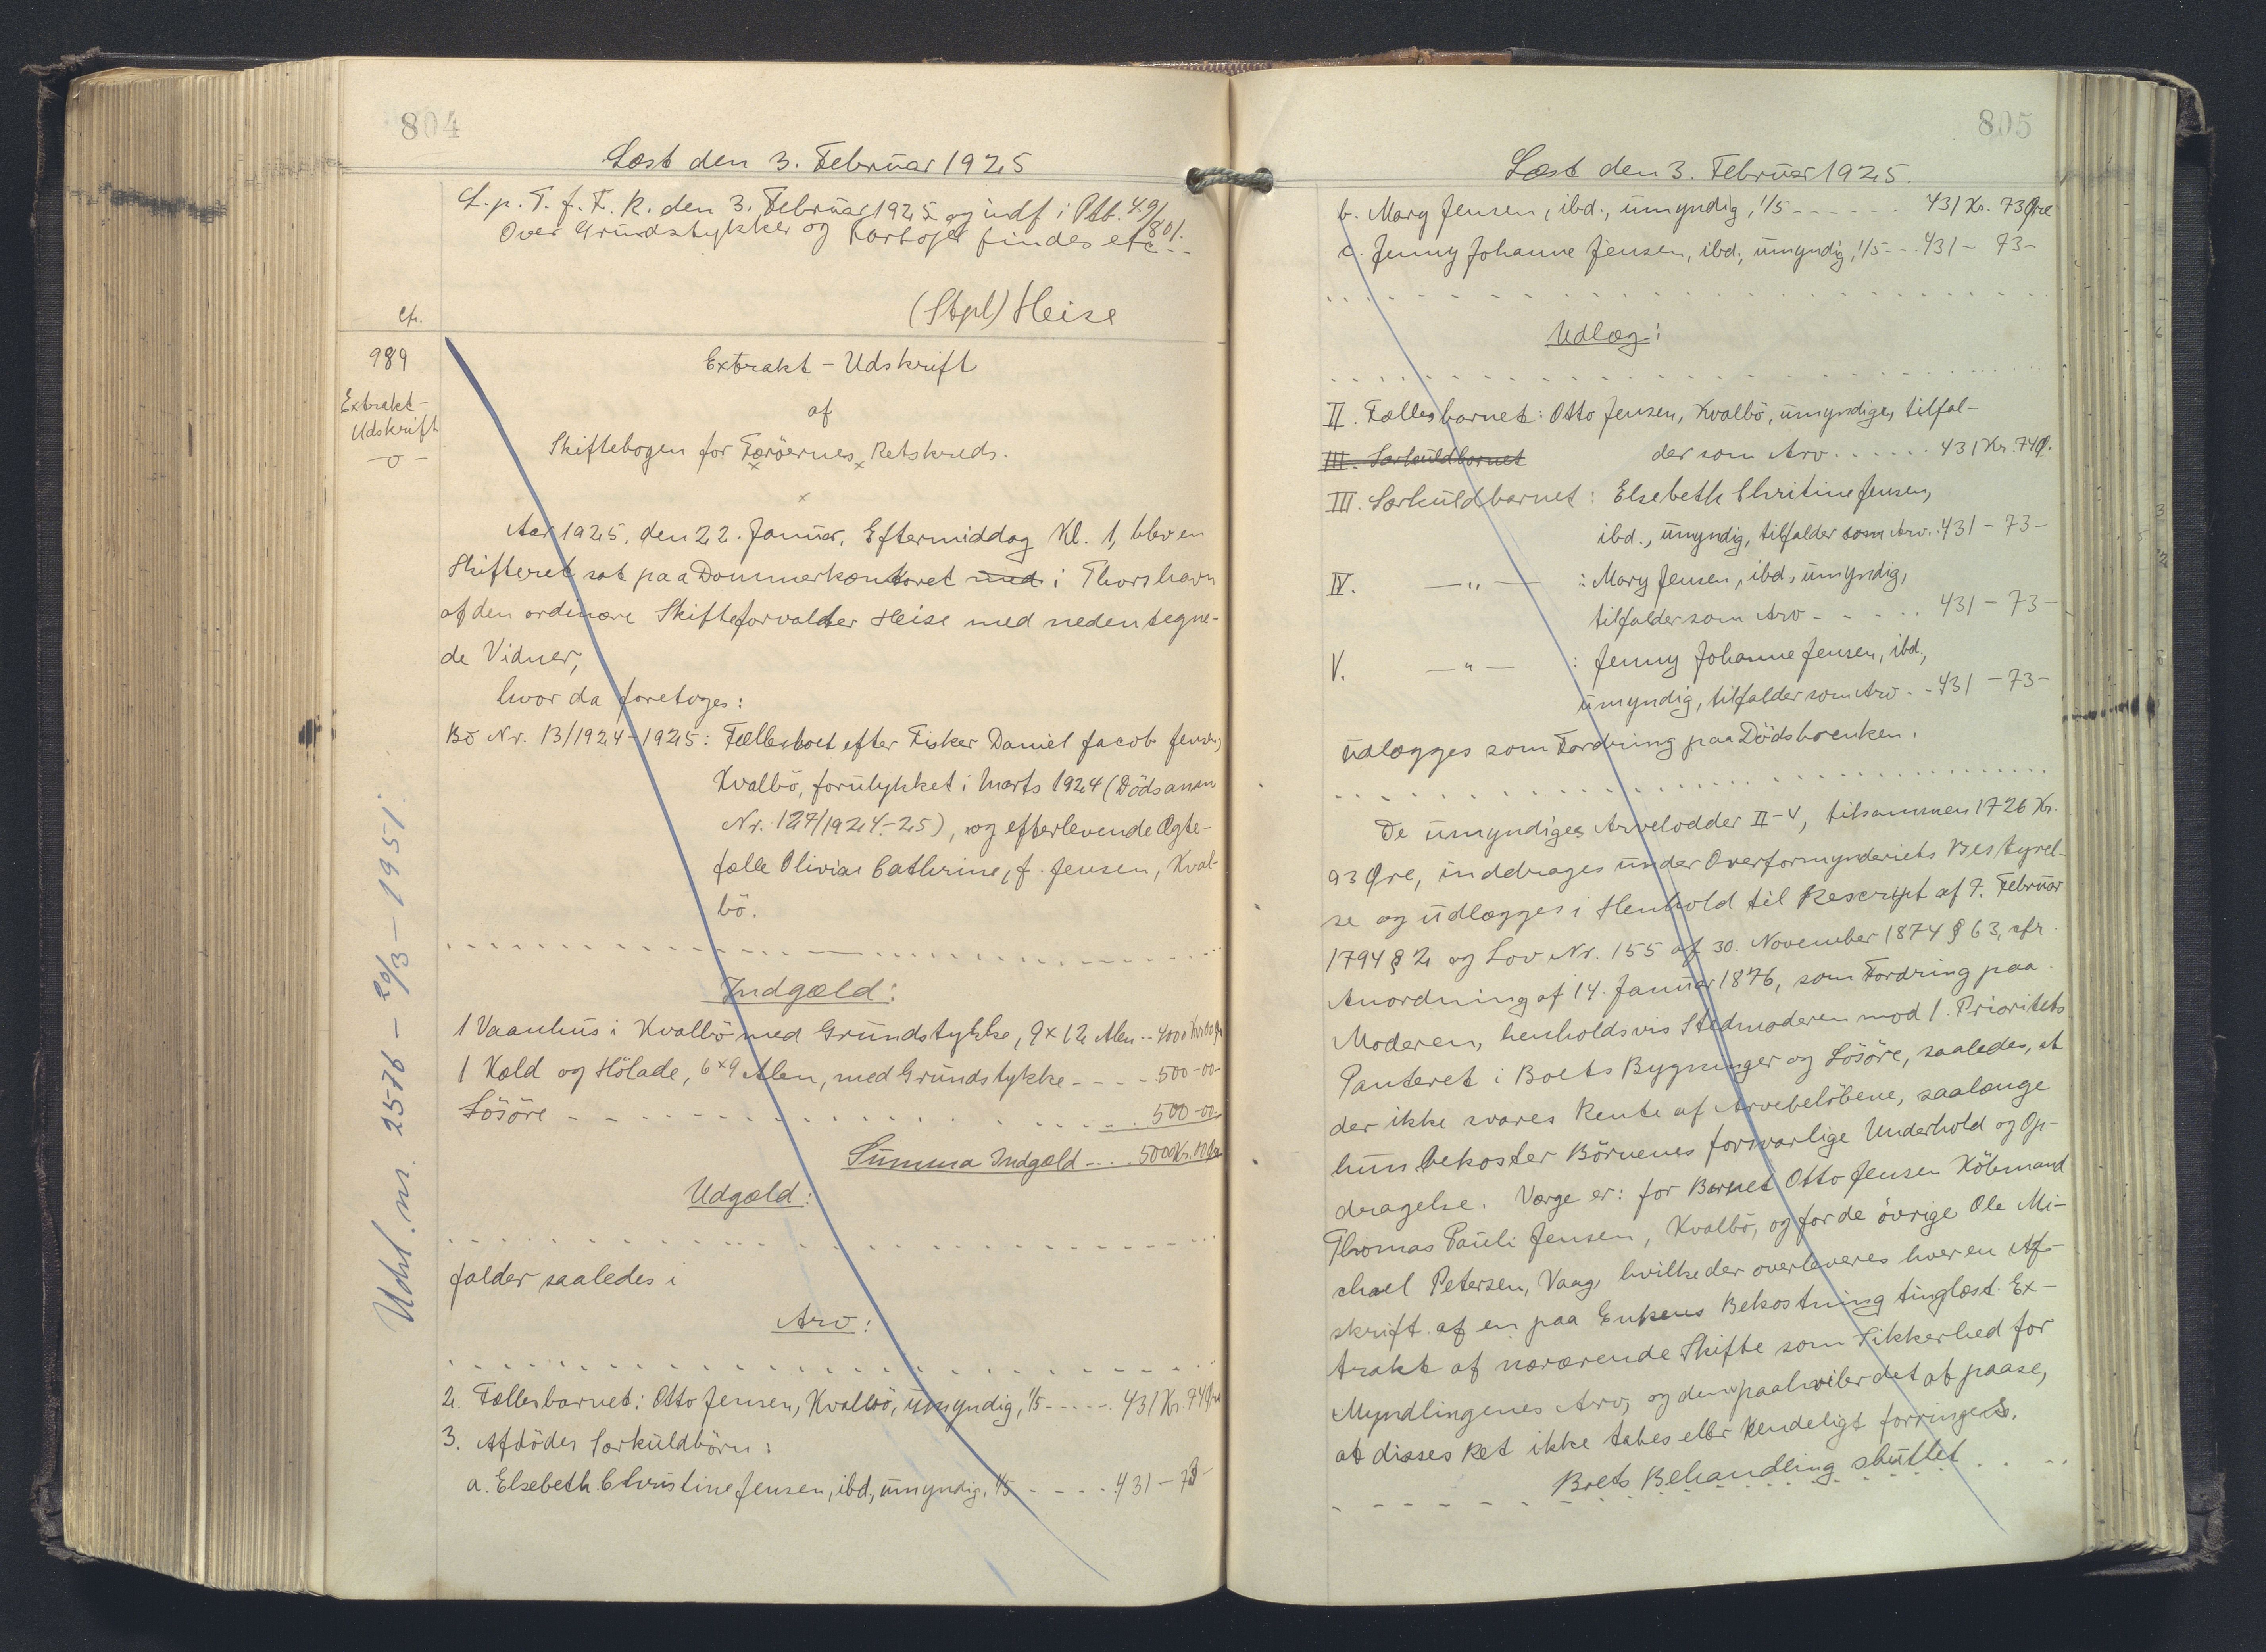 804
Læst den 3. Februar 1925
L. p. T. f. F. R. den 3. Februar 1925 og indf i Ptb. 49/801.
Over Grundstykker og Fartøjer findes etc..
(Stpl) Heise
cfr.
989
Extrakt-
Udskrift
Extrakt-Udskrift
af
Skiftebogen for Færöernes Retskreds.
Aar 1925, den 22. Januar, Eftermiddag Kl. 1, blev en
Skifteret sat paa Dommerkontoret med i Thorshavn
af den ordinære Skifteforvalter Heise med nedentegne-
de Vidner,
hvor da foretoges:
Bo Nr. 13/1924-1925: Fællesboet efter Fisker Daniel Jacob Jensen,
Kvalbö, forulykket i Marts 1924 (Dödsanm
Nr. 127/1924-25), og efterlevende Ægte-
fælle Olivia Cathrine, f. Jensen, Kval-
bö.
Indgæld:
1 Vaanhus i Kvalbö med Grundstykke, 9x12 Alen .. 4000 Kr. 00 Ør
1 Kæld og Hölade, 6x9 Alen, med Grundstykke - - - - 500-00-
Lösöre - - - - 500-00-
Summa Indgæld .... 5000 Kr. 00 Øre
Udgæld:
falder saaledes i
Arv:
2. Fællesbarnet: Otto Jensen, Kvalbö, umyndig, 1/5 ----- 431 Kr. 74 Øre
3. Afdödes Særkuldbörn:
a. Elsebeth Christine Jensen, ibd., umyndig, 1/5 - - - - 431-73-
Udsl. nr. 2576 - 20/3 - 1951.
805
Læst den 3. Februar 1925.
b. Mary Jensen, ibd., umyndig, 1/5 ------ 431 Kr. 73 Øre
c. Jenny Johanne Jensen, ibd., umyndig, 1/5 --- 431- 73-
Udlæg:
II. Fællesbarnet: Otto Jensen, Kvalbö, umyndige, tilfal-
III. Særkuldbarnet der som Arv ...... 431 Kr. 74 Ø.
III. Særkuldbarnet: Elsebeth Chritine Jensen,
ibd., umyndig, tilfalder som Arv. 431-73-
IV. —"— : Mary Jensen, ibd., umyndig,
tilfalder som Arv - - - 431-73-
V. —"— : Jenny Johanne Jensen, ibd.,
umyndig, tilfalder som Arv - - 431-73-
udlægges som Fordring paa Dödsboenken.
De umyndiges Arvelodder II-V, tilsammen 1726 Kr.
93 Øre, inddrages under Overformynderiets Bestyrel-
se og udlægges i Henhold til Rescript af 7. Februar
1794 § 2 og Lov Nr. 155 af 30. November 1874 § 63, cfr.
Anordning af 14. Januar 1876, som Fordring paa
Moderen, henholdsvis Stedmoderen mod 1. Prioritets
Panteret i Boets Bygninger og Lösöre, saaledes, at
der ikke svares Rente af Arvebelöbene, saalænge
hun bekoster Börnenes forsvarlige Underhold og Op-
dragelse. Værge er: for Barnet Otto Jensen Köbmand
Thomas Pauli Jensen, Kvalbö, og for de övrige Ole Mi-
chael Petersen, Vaag, hvilke der overleveres hver en Af-
skrift af en paa Enkens Bekostning tinglæst Ex-
trakt af nærværende Skifte som Sikkerhed for
Myndlingenes Arv, og dem paahviler det at paase,
at disses Ret ikke tabes eller kendeligt forringes.
Boets Behandling sluttet